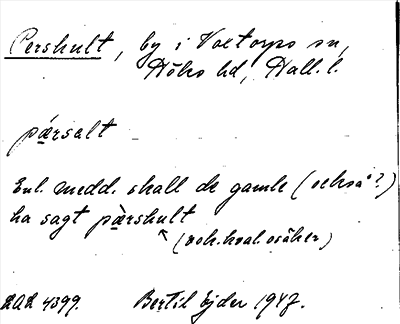 Pershult, by i Voxtorps sn,
Höks hd, Hall. l.
pärsalt
Enl. medd. skall de gamle (också?)
ha sagt pärshult
(vok.kval. osäker)
LAL 4399. Bertil Ejder 1947.